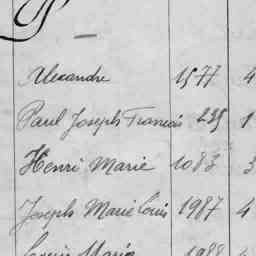 Alexandre 1577 4
Paul Joseph Francois 235 1
Henri Marie 1083 3
Joseph Marie Louis 1987 4
Louis Marie 1988